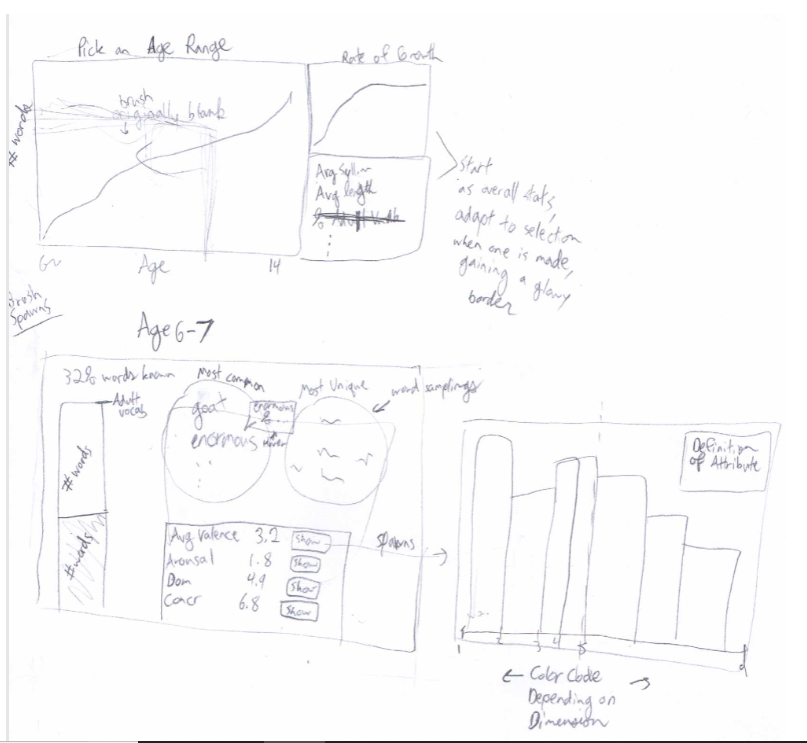 Pick an Age Range
# words
brush
originally blank
6
Age
14
Rate of Growth
Avg Syll
Avg length
Start
as overall stats,
adapt to selection
when one is made,
gaining a glowy
border
Brush
Spawns
Age 6-7
32% words known
Adult
vocab
# words
# words
Most common
goat
enormous
enormous
hover
Most Unique
word samplings
Avg Valence 3.2 Show
Arousal 1.8 Show
Dom 4.9 Show
Concr 6.8 Show
Spawns
Definition
of Attribute
1 2 3 4 5 9
← Color Code →
Depending on
Dimension